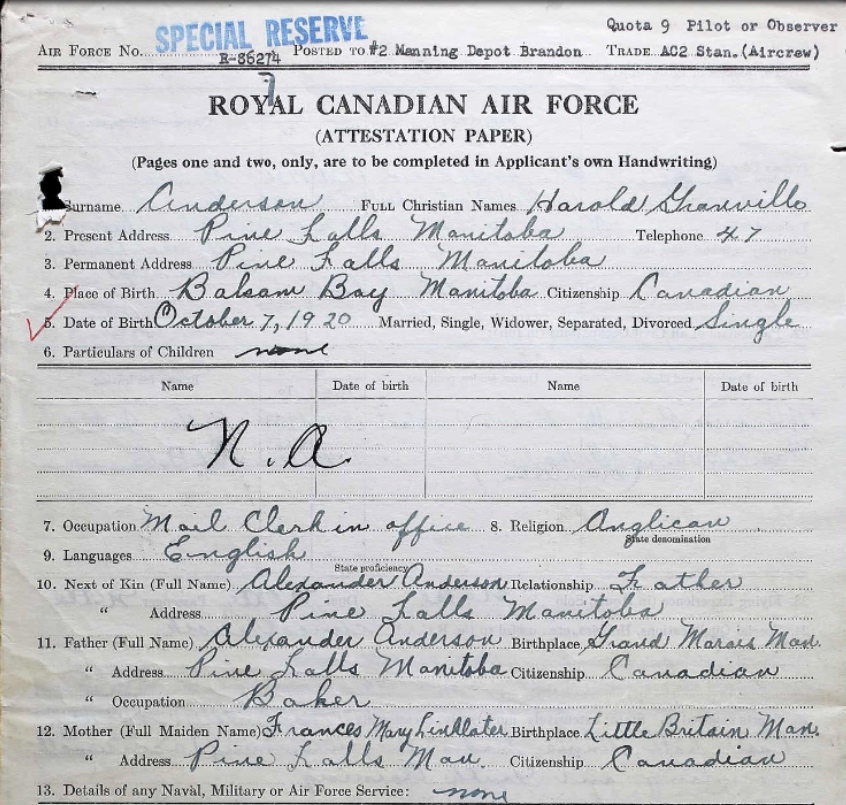 Quota 9 Pilot or Observer
SPECIAL RESERVE
AIR FORCE No. R-86274 POSTED TO #2 Manning Depot Brandon TRADE AC2 Stan.(Aircrew)
7
ROYAL CANADIAN AIR FORCE
(ATTESTATION PAPER)
(Pages one and two, only, are to be completed in Applicant's own Handwriting)
Surname Anderson FULL Christian Names Harold
2. Present Address Pine Falls Manitoba Telephone 47
3. Permanent Address Pine Falls Manitoba
4. Place of Birth Balsam Bay Manitoba Citizenship Canadian
5. Date of Birth October 7, 1920 Married, Single, Widower, Separated, Divorced Single
6. Particulars of Children none
Name Date of birth Name Date of birth
N. A.
7. Occupation Mail Clerk in office 8. Religion Anglican
State denomination
9. Languages English
State proficiency
10. Next of Kin (Full Name) Alexander Anderson Relationship Father
" Address Pine Falls Manitoba
11. Father (Full Name) Alexander Anderson Birthplace Grand Marais Man.
" Address Pine Falls Manitoba Citizenship Canadian
" Occupation Baker
12. Mother (Full Maiden Name) Frances Mary Linklater Birthplace Little Britain Man.
" Address Pine Falls Man. Citizenship Canadian
13. Details of any Naval, Military or Air Force Service: none